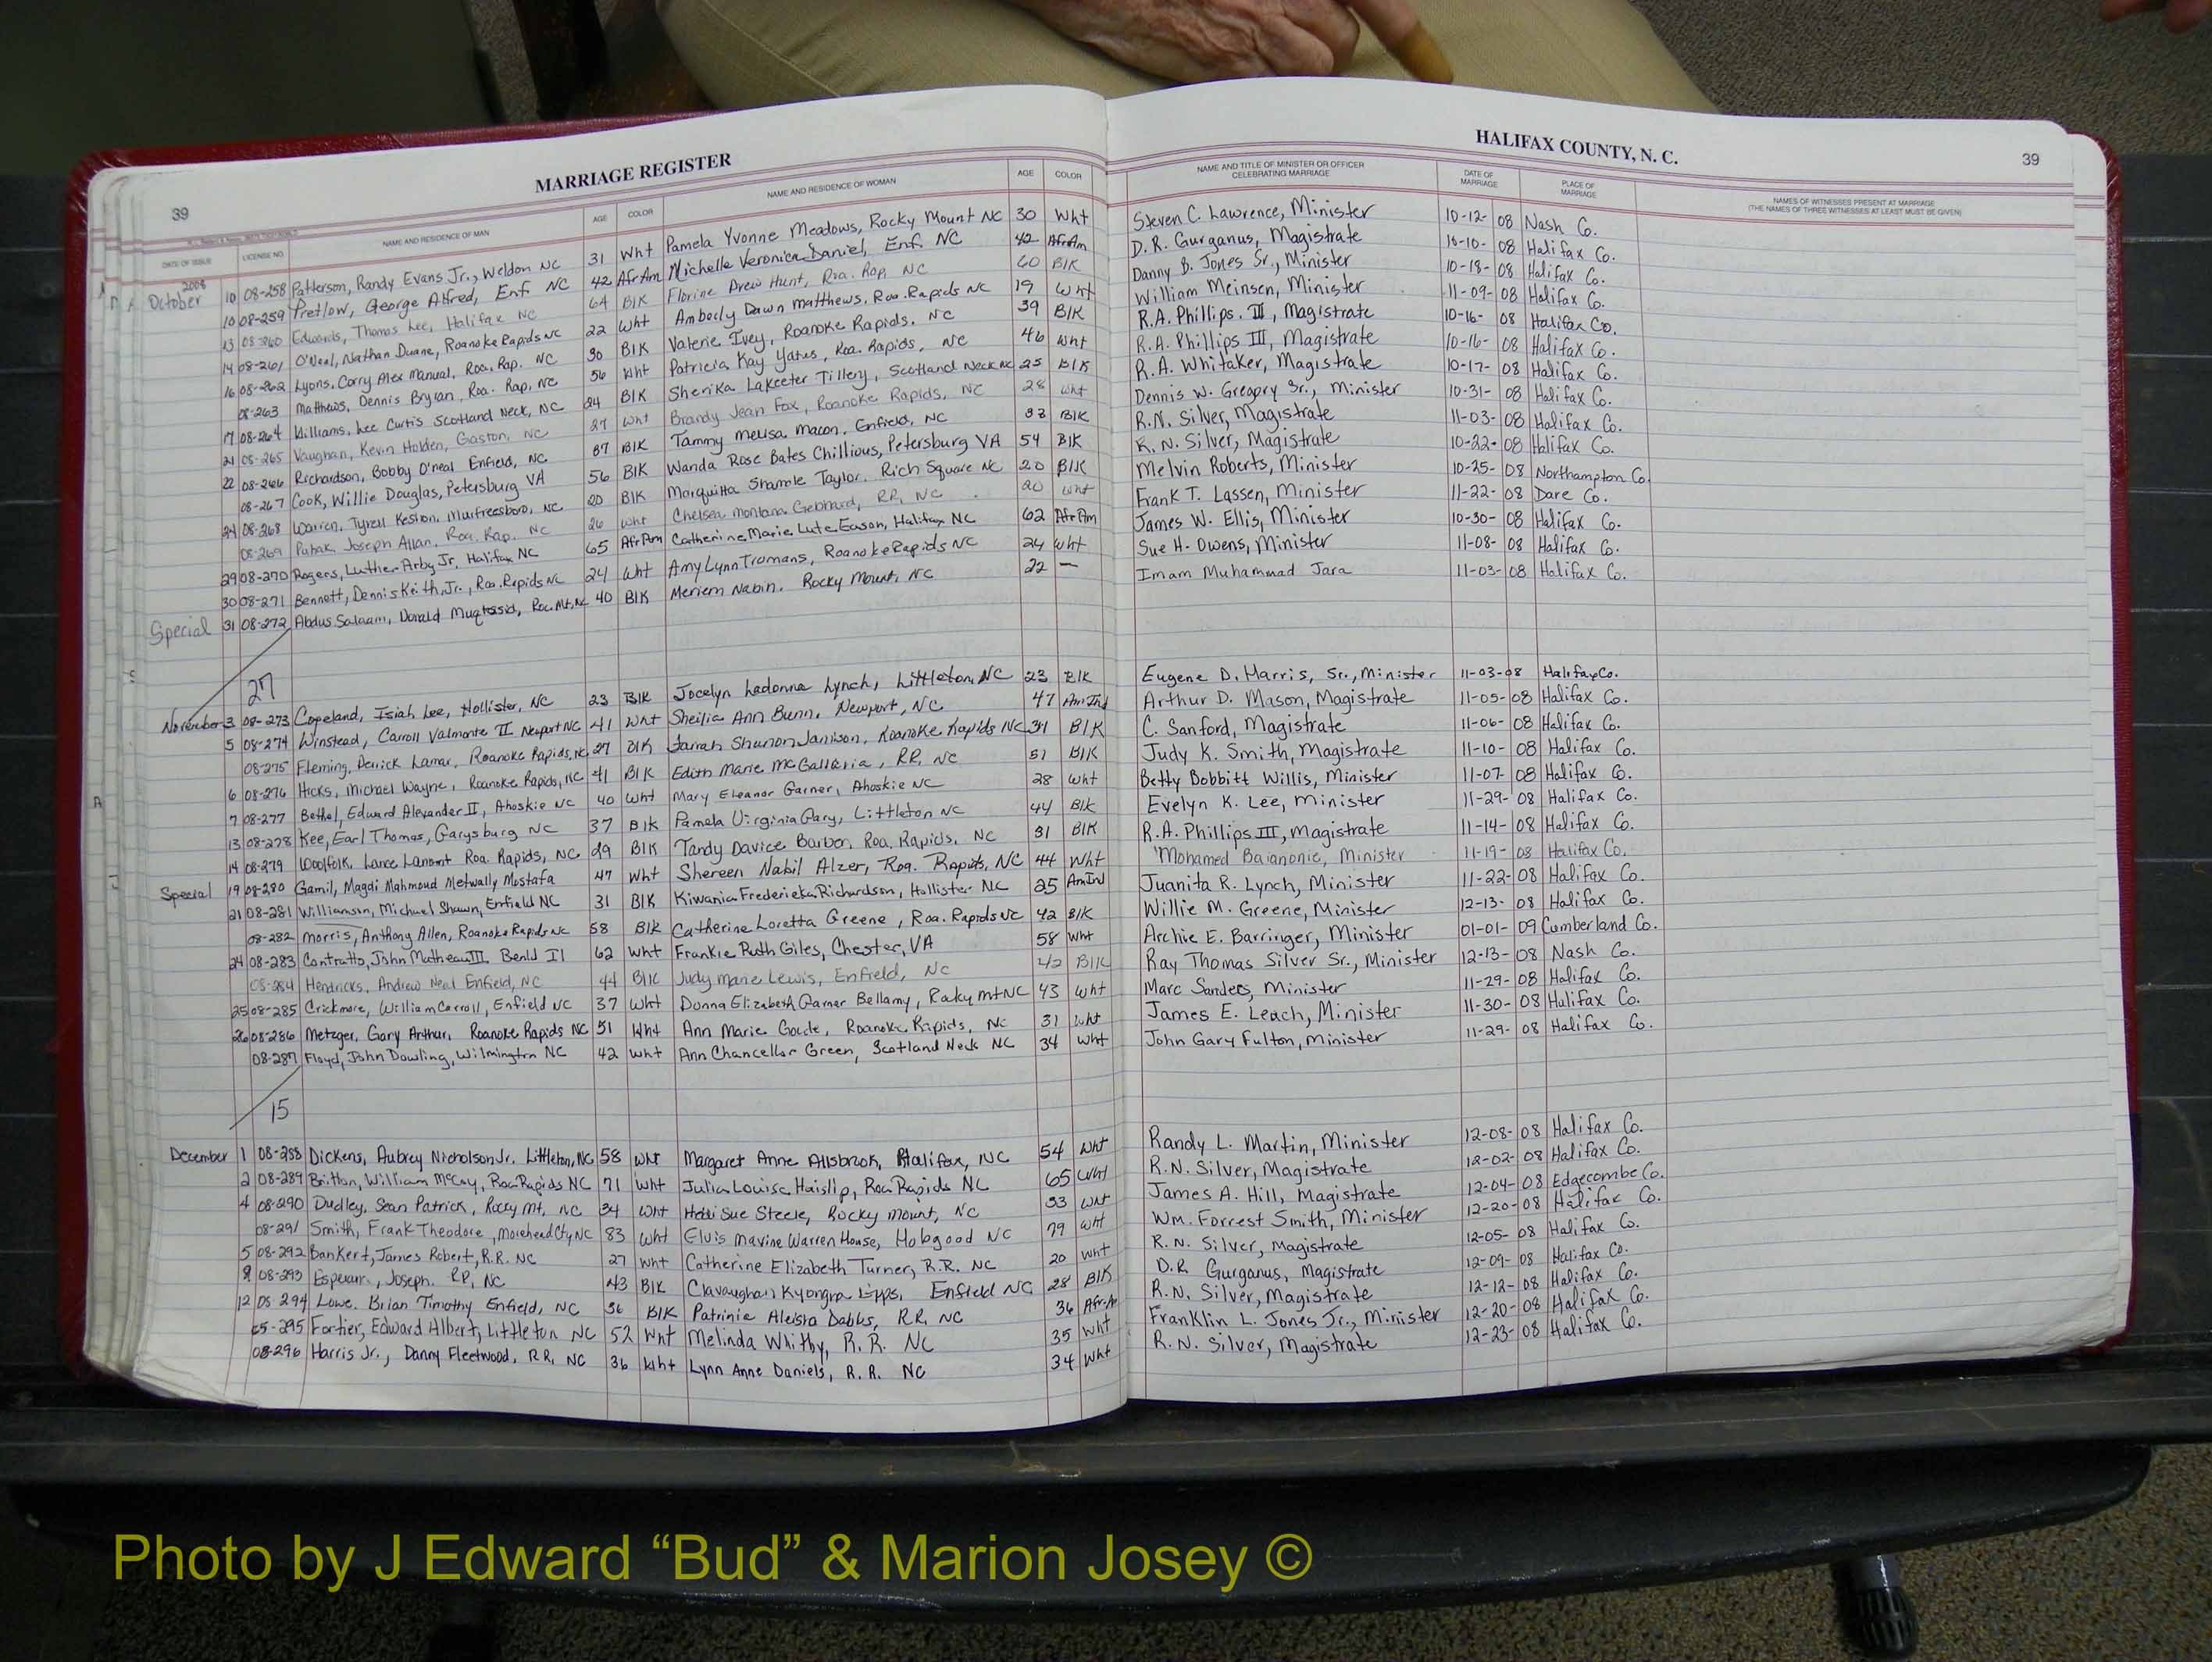 MARRIAGE REGISTER
HALIFAX COUNTY, N. C.
39
39
DATE OF ISSUE LICENSE NO. NAME AND RESIDENCE OF MAN AGE COLOR NAME AND RESIDENCE OF WOMAN AGE COLOR NAME AND TITLE OF MINISTER OR OFFICER CELEBRATING MARRIAGE DATE OF MARRIAGE PLACE OF MARRIAGE NAMES OF WITNESSES PRESENT AT MARRIAGE (THE NAMES OF THREE WITNESSES AT LEAST MUST BE GIVEN)
2008
October 10 08-258 Patterson, Randy Evans Jr., Weldon NC 31 Wht Pamela Yvonne Meadows, Rocky Mount NC 30 Wht Steven C. Lawrence, Minister 10-12-08 Nash Co.
10 08-259 Pretlow, George Alfred, Enf NC 42 AfrAm Michelle Veronica Daniel, Enf. NC 42 AfrAm D. R. Gurganus, Magistrate 10-10-08 Halifax Co.
13 08-260 Edwards, Thomas Lee, Halifax NC 64 Blk Florine Drew Hunt, Roa. Rap. NC 60 Blk Danny B. Jones Sr., Minister 10-18-08 Halifax Co.
14 08-261 O'Neal, Nathan Duane, Roanoke Rapids NC 22 Wht Amberly Dawn Matthews, Roa. Rapids NC 19 Wht William Meinsen, Minister 11-09-08 Halifax Co.
16 08-262 Lyons, Corry Alex Manual, Roa. Rap. NC 30 Blk Valerie Ivey, Roanoke Rapids, NC 39 Blk R.A. Phillips III, Magistrate 10-16-08 Halifax Co.
08-263 Matthews, Dennis Bryan, Roa. Rap, NC 56 Wht Patricia Kay Yates, Roa. Rapids, NC 46 Wht R.A. Phillips III, Magistrate 10-16-08 Halifax Co.
17 08-264 Williams, Lee Curtis Scotland Neck, NC 24 Blk Sherika Lakeeter Tillery, Scotland Neck NC 25 Blk R.A. Whitaker, Magistrate 10-17-08 Halifax Co.
21 08-265 Vaughan, Kevin Holden, Gaston, NC 27 Wht Brandy Jean Fox, Roanoke Rapids, NC 28 Wht Dennis W. Gregory Sr., Minister 10-31-08 Halifax Co.
22 08-266 Richardson, Bobby O'neal Enfield, NC 37 Blk Tammy Melisa Macon, Enfield, NC 33 Blk R.N. Silver, Magistrate 11-03-08 Halifax Co.
08-267 Cook, Willie Douglas, Petersburg VA 56 Blk Wanda Rose Bates Chillious, Petersburg VA 54 Blk R. N. Silver, Magistrate 10-22-08 Halifax Co.
24 08-268 Warren, Tyrell Keston, Murfreesboro, NC 20 Blk Marquitta Shamole Taylor. Rich Square NC 20 Blk Melvin Roberts, Minister 10-25-08 Northampton Co.
08-269 Joseph Allan, Roa. Rap. NC 26 Wht Chelsea Montana Gebhard, RR, NC 20 Wht Frank T. Lassen, Minister 11-22-08 Dare Co.
29 08-270 Rogers, Luther Arby Jr, Halifax NC 65 AfrAm Catherine Marie Lute Eason, Halifax NC 62 AfrAm James W. Ellis, Minister 10-30-08 Halifax Co.
30 08-271 Bennett, Dennis Keith, Jr., Roa. Rapids NC 24 Wht Amy Lynn Tromans, Roanoke Rapids NC 24 Wht Sue H. Owens, Minister 11-08-08 Halifax Co.
Special 31 08-272 Abdus Salaam, Donald 40 Blk Meriem Nabin. Rocky Mount, NC 22 — Imam Muhammad Jara 11-03-08 Halifax Co.
27
November 3 08-273 Copeland, Isiah Lee, Hollister, NC 23 Blk Jocelyn Ladonna Lynch, Littleton, NC 23 Blk Eugene D. Harris, Sr., Minister 11-03-08 Halifax Co.
5 08-274 Winstead, Carroll Valmonte II Newport NC 41 Wht Sheilia Ann Bunn, Newport, NC 47 Am Ind Arthur D. Mason, Magistrate 11-05-08 Halifax Co.
08-275 Fleming, Derrick Lamar, Roanoke Rapids, NC 27 Blk Farrah Shunon Janison, Roanoke Rapids NC 31 Blk C. Sanford, Magistrate 11-06-08 Halifax Co.
6 08-276 Hicks, Michael Wayne, Roanoke Rapids, NC 41 Blk Edith Marie McGalleria, RR, NC 51 Blk Judy K. Smith, Magistrate 11-10-08 Halifax Co.
7 08-277 Bethel, Edward Alexander II, Ahoskie NC 40 Wht Mary Eleanor Garner, Ahoskie NC 28 Wht Betty Bobbitt Willis, Minister 11-07-08 Halifax Co.
13 08-278 Kee, Earl Thomas, Garysburg NC 37 Blk Pamela Virginia Gary, Littleton NC 44 Blk Evelyn K. Lee, Minister 11-29-08 Halifax Co.
14 08-279 Woolfolk, Lance Lamont Roa. Rapids, NC 29 Blk Tandy Davice Barber, Roa. Rapids, NC 31 Blk R.A. Phillips III, Magistrate 11-14-08 Halifax Co.
Special 19 08-280 Gamil, Magdi Mahmoud Metwally Mostafa 47 Wht Shereen Nabil Alzer, Roa. Rapids, NC 44 Wht Mohamed Baianonie, Minister 11-19-08 Halifax Co.
21 08-281 Williamson, Michael Shawn, Enfield NC 31 Blk Kiwania Frederieka Richardson, Hollister NC 25 Am Ind Juanita R. Lynch, Minister 11-22-08 Halifax Co.
08-282 Morris, Anthony Allen, Roanoke Rapids NC 58 Blk Catherine Loretta Greene, Roa. Rapids NC 42 Blk Willie M. Greene, Minister 12-13-08 Halifax Co.
24 08-283 Contratto, John Matheau III. Benld Il 62 Wht Frankie Ruth Giles, Chester, VA 58 Wht Archie E. Barringer, Minister 01-01-09 Cumberland Co.
08-284 Hendricks, Andrew Neal Enfield, NC 44 Blk Judy Marie Lewis, Enfield, NC 42 Blk Ray Thomas Silver Sr., Minister 12-13-08 Nash Co.
25 08-285 Crickmore, William Carroll, Enfield NC 37 Wht Donna Elizabeth Garner Bellamy, Rocky Mt NC 43 Wht Marc Sanders, Minister 11-29-08 Halifax Co.
26 08-286 Metzger, Gary Arthur, Roanoke Rapids NC 51 Wht Ann Marie Goude, Roanoke Rapids, NC 31 Wht James E. Leach, Minister 11-30-08 Halifax Co.
08-287 Floyd, John Dowling, Wilmington NC 42 Wht Ann Chancellor Green, Scotland Neck NC 34 Wht John Gary Fulton, Minister 11-29-08 Halifax Co.
15
December 1 08-288 Dickens, Aubrey Nicholson Jr. Littleton, NC 58 Wht Margaret Anne Allsbrook, Halifax, NC 54 Wht Randy L. Martin, Minister 12-08-08 Halifax Co.
2 08-289 Britton, William McCoy, Roa Rapids NC 71 Wht Julia Louise Haislip, Roa Rapids NC 65 Wht R.N. Silver, Magistrate 12-02-08 Halifax Co.
4 08-290 Dudley, Sean Patrick, Rocky Mt, NC 34 Wht Heidi Sue Steele, Rocky Mount, NC 33 Wht James A. Hill, Magistrate 12-04-08 Edgecombe Co.
08-291 Smith, Frank Theodore, Morehead Cty NC 83 Wht Elvis Mavine Warren House, Hobgood NC 79 Wht Wm. Forrest Smith, Minister 12-20-08 Halifax Co.
5 08-292 Bankert, James Robert, R.R. NC 27 Wht Catherine Elizabeth Turner, R.R. NC 20 Wht R.N. Silver, Magistrate 12-05-08 Halifax Co.
9 08-293 Joseph. RR, NC 43 Blk Clavaughan Kyongra Epps, Enfield NC 28 Blk D.R Gurganus, Magistrate 12-09-08 Halifax Co.
12 08-294 Lowe. Brian Timothy Enfield, NC 36 Blk Patrinia Aleisha Dabbs, RR, NC 36 Afr-A R.N. Silver, Magistrate 12-12-08 Halifax Co.
08-295 Fortier, Edward Albert, Littleton NC 52 Wht Melinda Whitby, R.R. NC 35 Wht Franklin L. Jones Jr., Minister 12-20-08 Halifax Co.
08-296 Harris Jr., Danny Fleetwood, RR, NC 36 Wht Lynn Anne Daniels, R.R. NC 34 Wht R.N. Silver, Magistrate 12-23-08 Halifax Co.
Photo by J Edward “Bud” & Marion Josey ©